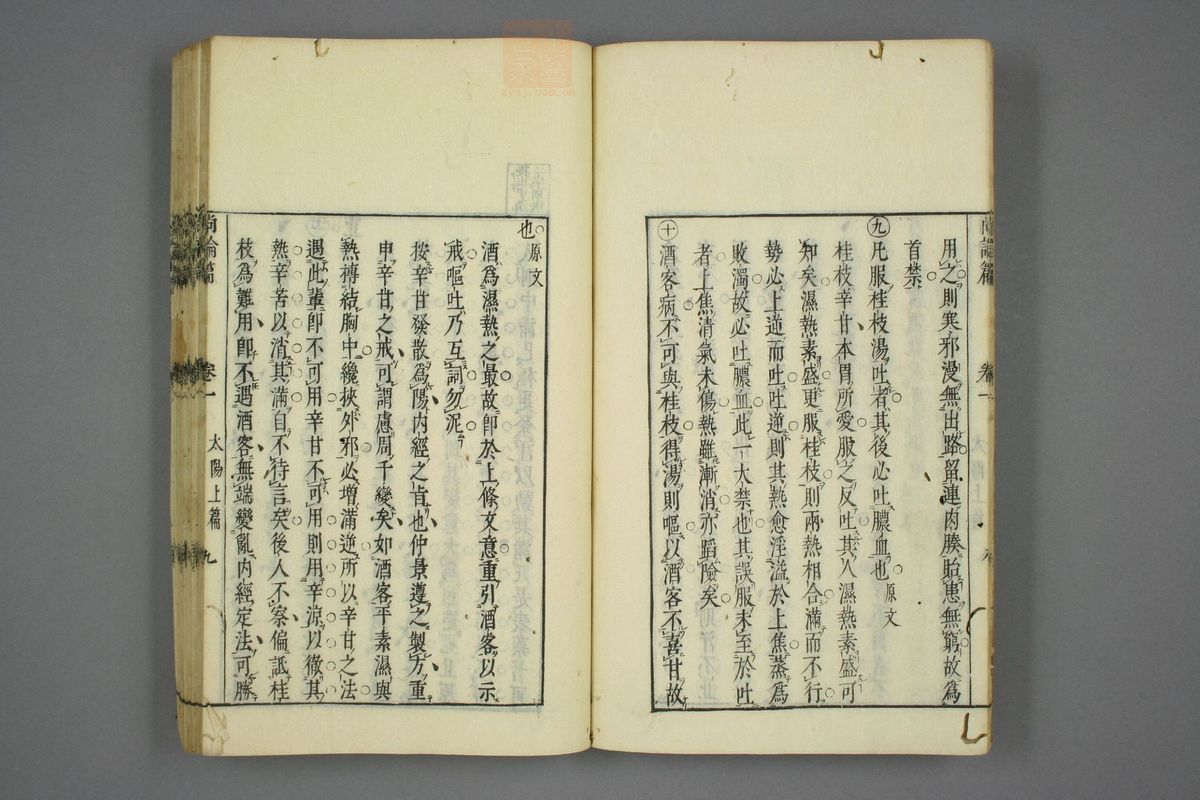 用之則寒邪漫無出路留連肉腠貽患無窮故爲
首禁
九 凡服桂枝湯吐者其後必吐膿血也 原文
桂枝辛甘本胃所愛服之反吐其人濕熱素盛可
知矣濕熱素盛更服桂枝則兩熱相合滿而不行
勢必上逆而吐吐逆則其熱愈淫溢於上焦蒸爲
敗濁故必吐膿血此一大禁也其誤服未至於吐
者上焦清氣未傷熱雖漸消亦蹈險矣
十 酒客病不可與桂枝得湯則嘔以酒客不喜甘故
也 原文
酒爲濕熱之最故卽於上條文意重引酒客以示
戒嘔吐乃互詞勿泥
按辛甘發散爲陽內經之旨也仲景遵之製方重
申辛甘之戒可謂慮周千變矣如酒客平素濕與
熱搏結胸中纔挾外邪必增滿逆所以辛甘之法
遇此輩卽不可用辛甘不可用則用辛涼以徹其
熱辛苦以消其滿自不待言矣後人不察偏詆桂
枝爲難用卽不遇酒客無端變亂內經定法可勝
尚論篇 卷一 太陽上篇 九
zysj.com.cn